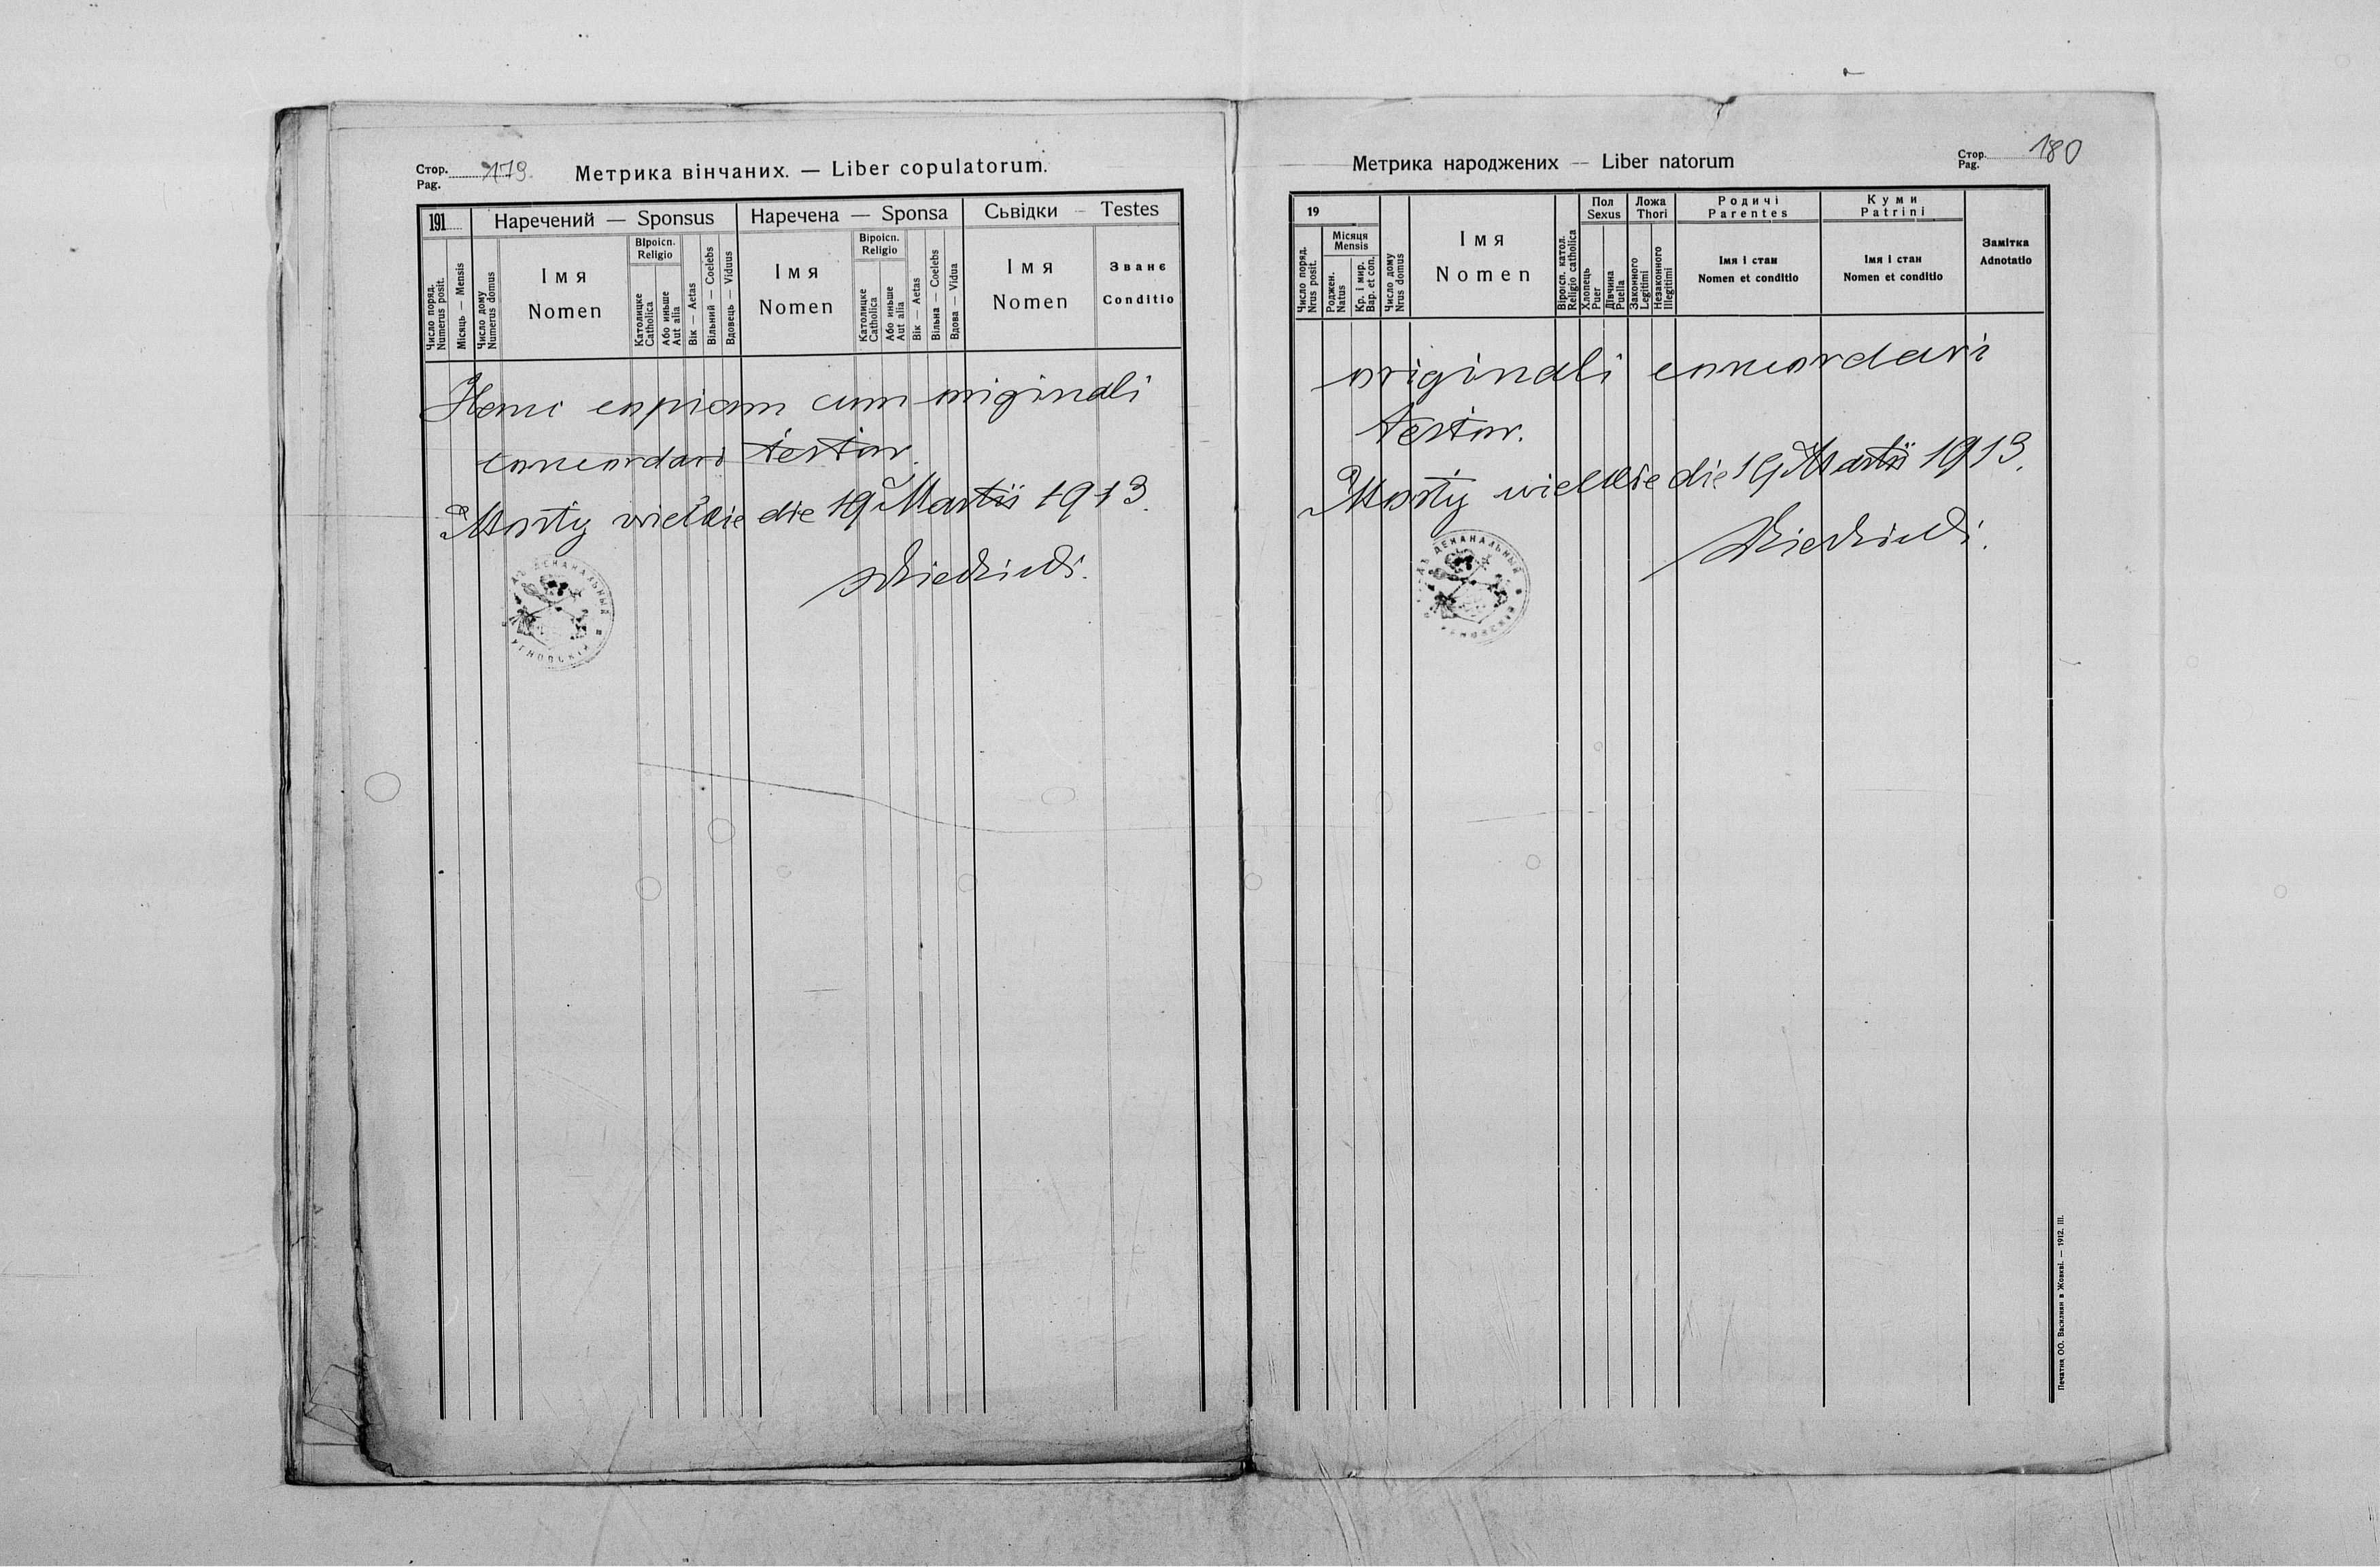 Стор. 179.
Pag.
Метрика вінчаних. — Liber copulatorum.
191
Наречений — Sponsus
Наречена — Sponsa
Сьвідки — Testes
Число поряд.
Numerus posit.
Місяць — Mensis
Число дому
Numerus domus
Імя
Nomen
Віроісп.
Religio
Католицке
Catholica
Або иньше
Aut alia
Вік — Aetas
Вільний — Coelebs
Вдовець — Viduus
Імя
Nomen
Віроісп.
Religio
Католицке
Catholica
Або иньше
Aut alia
Вік — Aetas
Вільна — Coelebs
Вдова — Vidua
Імя
Nomen
Званє
Conditio
Hanc copiam cum originali
concordari testor.
Mosty wielkie die 19 Martii 1913.
ДЕКАНАЛЬНЫЙ
Метрика народжених — Liber natorum
Стор. 180
Pag.
19
Число поряд.
Nrus posit.
Місяця
Mensis
Роджен.
Natus
Кр. і мир.
Bap. et con.
Число дому
Nrus domus
Імя
Nomen
Віроісп. катол.
Religio catholica
Пол
Sexus
Хлопець
Puer
Дівчина
Puella
Ложа
Thori
Законного
Legitimi
Незаконного
Illegitimi
Родичі
Parentes
Імя і стан
Nomen et conditio
Куми
Patrini
Імя і стан
Nomen et conditio
Замітка
Adnotatio
originali concordari
testor.
Mosty wielkie die 19 Martii 1913.
ДЕКАНАЛЬНЫЙ
Печатня ОО. Василиян в Жовкві. — 1912. III.